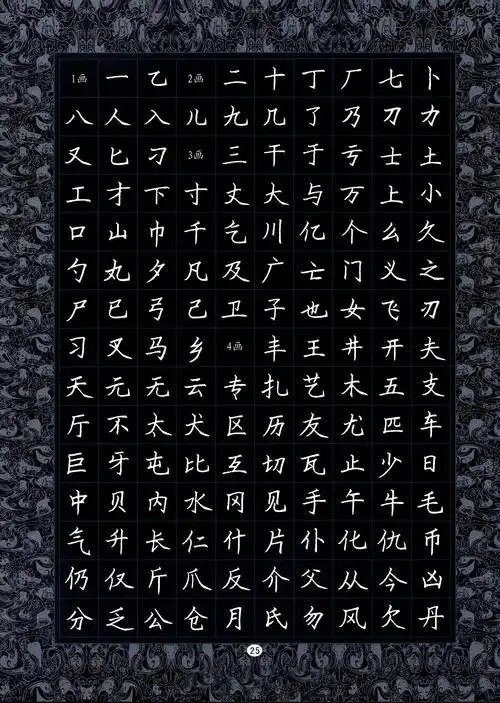 1画 一 乙 2画 二 十 丁 厂 七 卜
八 人 入 儿 九 几 了 乃 刀 力
又 匕 刁 3画 三 干 于 亏 士 土
工 才 下 寸 丈 大 与 万 上 小
口 山 巾 千 乞 川 亿 个 么 久
勺 丸 夕 凡 及 广 亡 门 义 之
尸 已 弓 己 卫 子 也 女 飞 刃
习 叉 马 乡 4画 丰 王 井 开 夫
天 元 无 云 专 扎 艺 木 五 支
厅 不 太 犬 区 历 友 尤 匹 车
巨 牙 屯 比 互 切 瓦 止 少 日
中 贝 内 水 冈 见 手 午 牛 毛
气 升 长 仁 什 片 仆 化 仇 币
仍 仅 斤 爪 反 介 父 从 今 凶
分 乏 公 仓 月 氏 勿 风 欠 丹
25